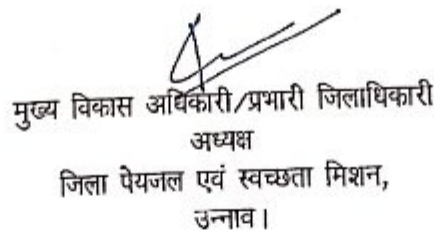 मुख्य विकास अधिकारी/प्रभारी जिलाधिकारी
अध्यक्ष
जिला पेयजल एवं स्वच्छता मिशन,
उन्नाव।